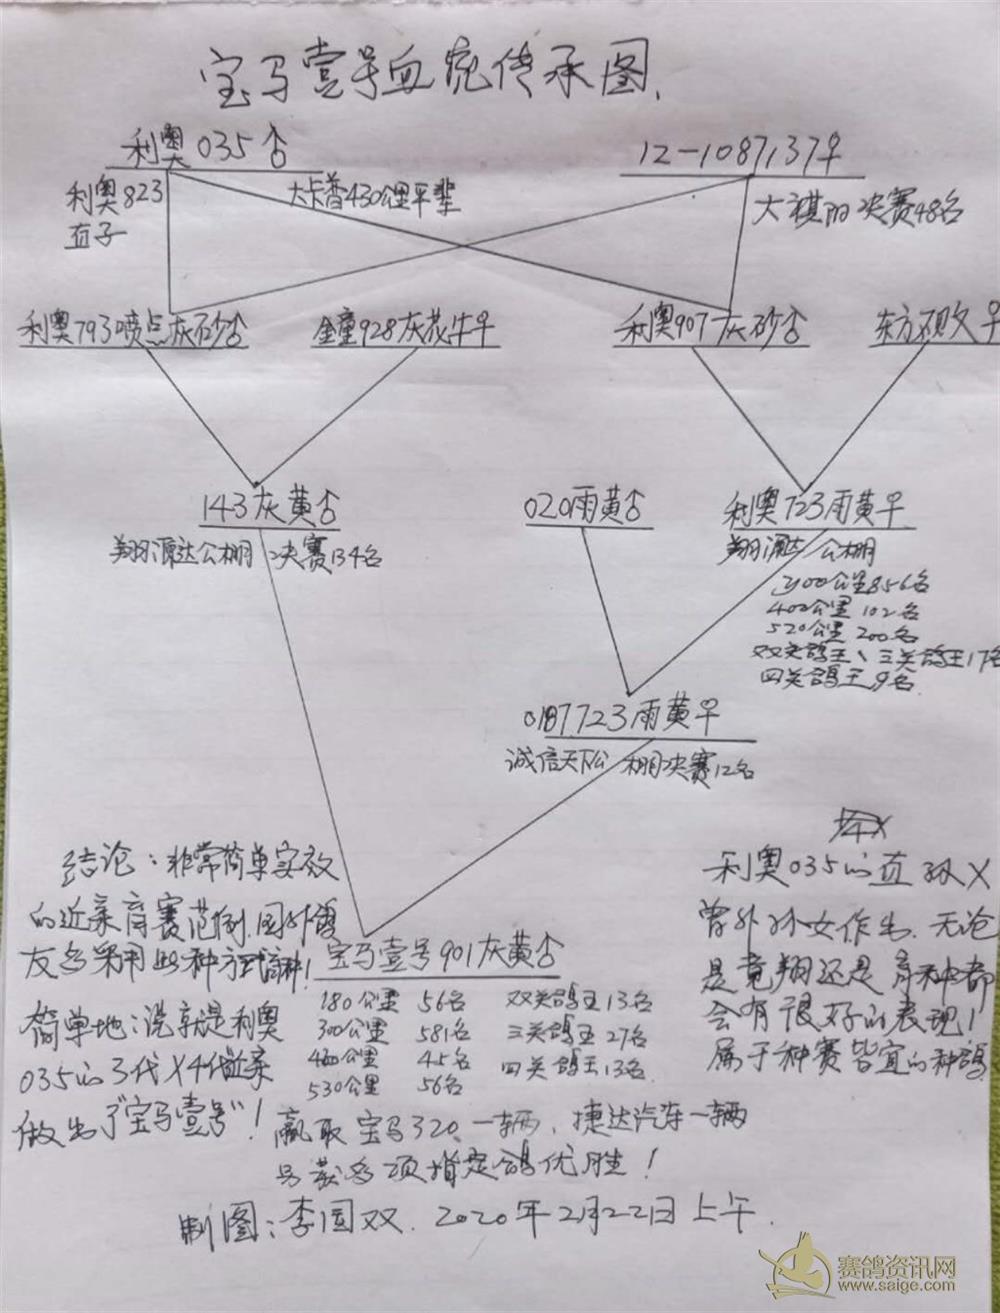 宝马壹号血统传承图.
利奥035♂
12-1087137♀
利奥823
直子
大卡普430公里平辈
大祺的决赛48名
利奥793喷点灰砂♂
金童928灰花牛♀
利奥907灰砂♂
东方不败♀
143灰黄♂
翔源达公棚 决赛134名
020雨黄♂
利奥723雨黄♀
翔源达 公棚
300公里856名
400公里 102名
520公里 200名
双关鸽王、三关鸽王17名
四关鸽王9名
0187723雨黄♀
诚信天下公棚决赛12名
结论:非常简单实效
的近亲育赛范例.国外鸽
友多采用此种方式育种!
简单地:说就是利奥
035的3代X4代近亲
做出了“宝马壹号”!
利奥035的直孙X
曾外孙女作出.无论
是竞翔还是育种都
会有很好的表现!
属于种赛皆宜的种鸽
宝马壹号901灰黄♂
180公里 56名 双关鸽王13名
300公里 581名 三关鸽王27名
400公里 45名 四关鸽王13名
530公里 56名
赢取宝马320、一辆.捷达汽车一辆
另获多项指定鸽优胜!
制图:李国双.2020年2月22日上午.
赛鸽资讯网
www.saige.com